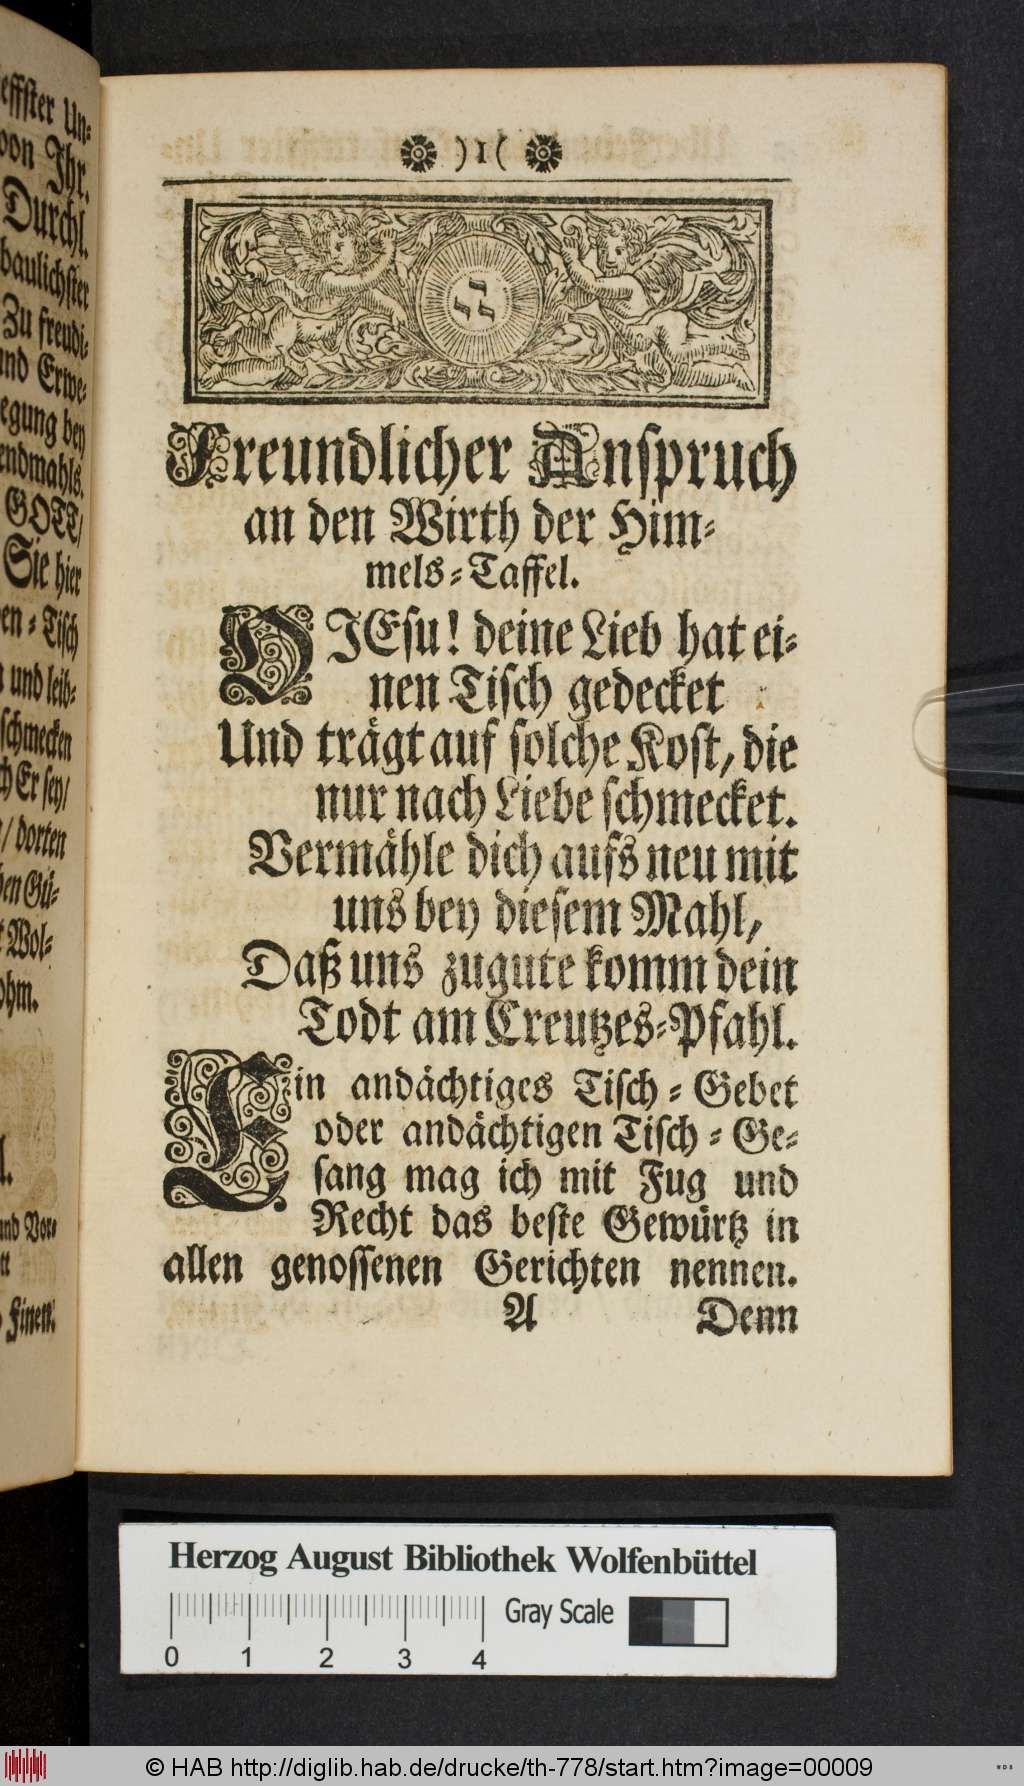 effster Un-
von Ihr.
Durchl.
baulichster
Zu freudi-
und Erwe-
egung bey
endmahls.
GOTT/
Sie hier
en-Tisch
und leib-
schmecken
ch Er sey/
/ dorten
en Gü-
Wol-
ohm.
l.
und Vor-
Finen.
)1(
Freundlicher Anspruch
an den Wirth der Him-
mels-Taffel.
O JEsu! deine Lieb hat ei-
nen Tisch gedecket
Und trägt auf solche Kost, die
nur nach Liebe schmecket.
Vermähle dich aufs neu mit
uns bey diesem Mahl,
Daß uns zugute komm dein
Todt am Creutzes-Pfahl.
Ein andächtiges Tisch-Gebet
oder andächtigen Tisch-Ge-
sang mag ich mit Fug und
Recht das beste Gewürtz in
allen genossenen Gerichten nennen.
A Denn
Herzog August Bibliothek Wolfenbüttel
Gray Scale
0 1 2 3 4
© HAB http://diglib.hab.de/drucke/th-778/start.htm?image=00009